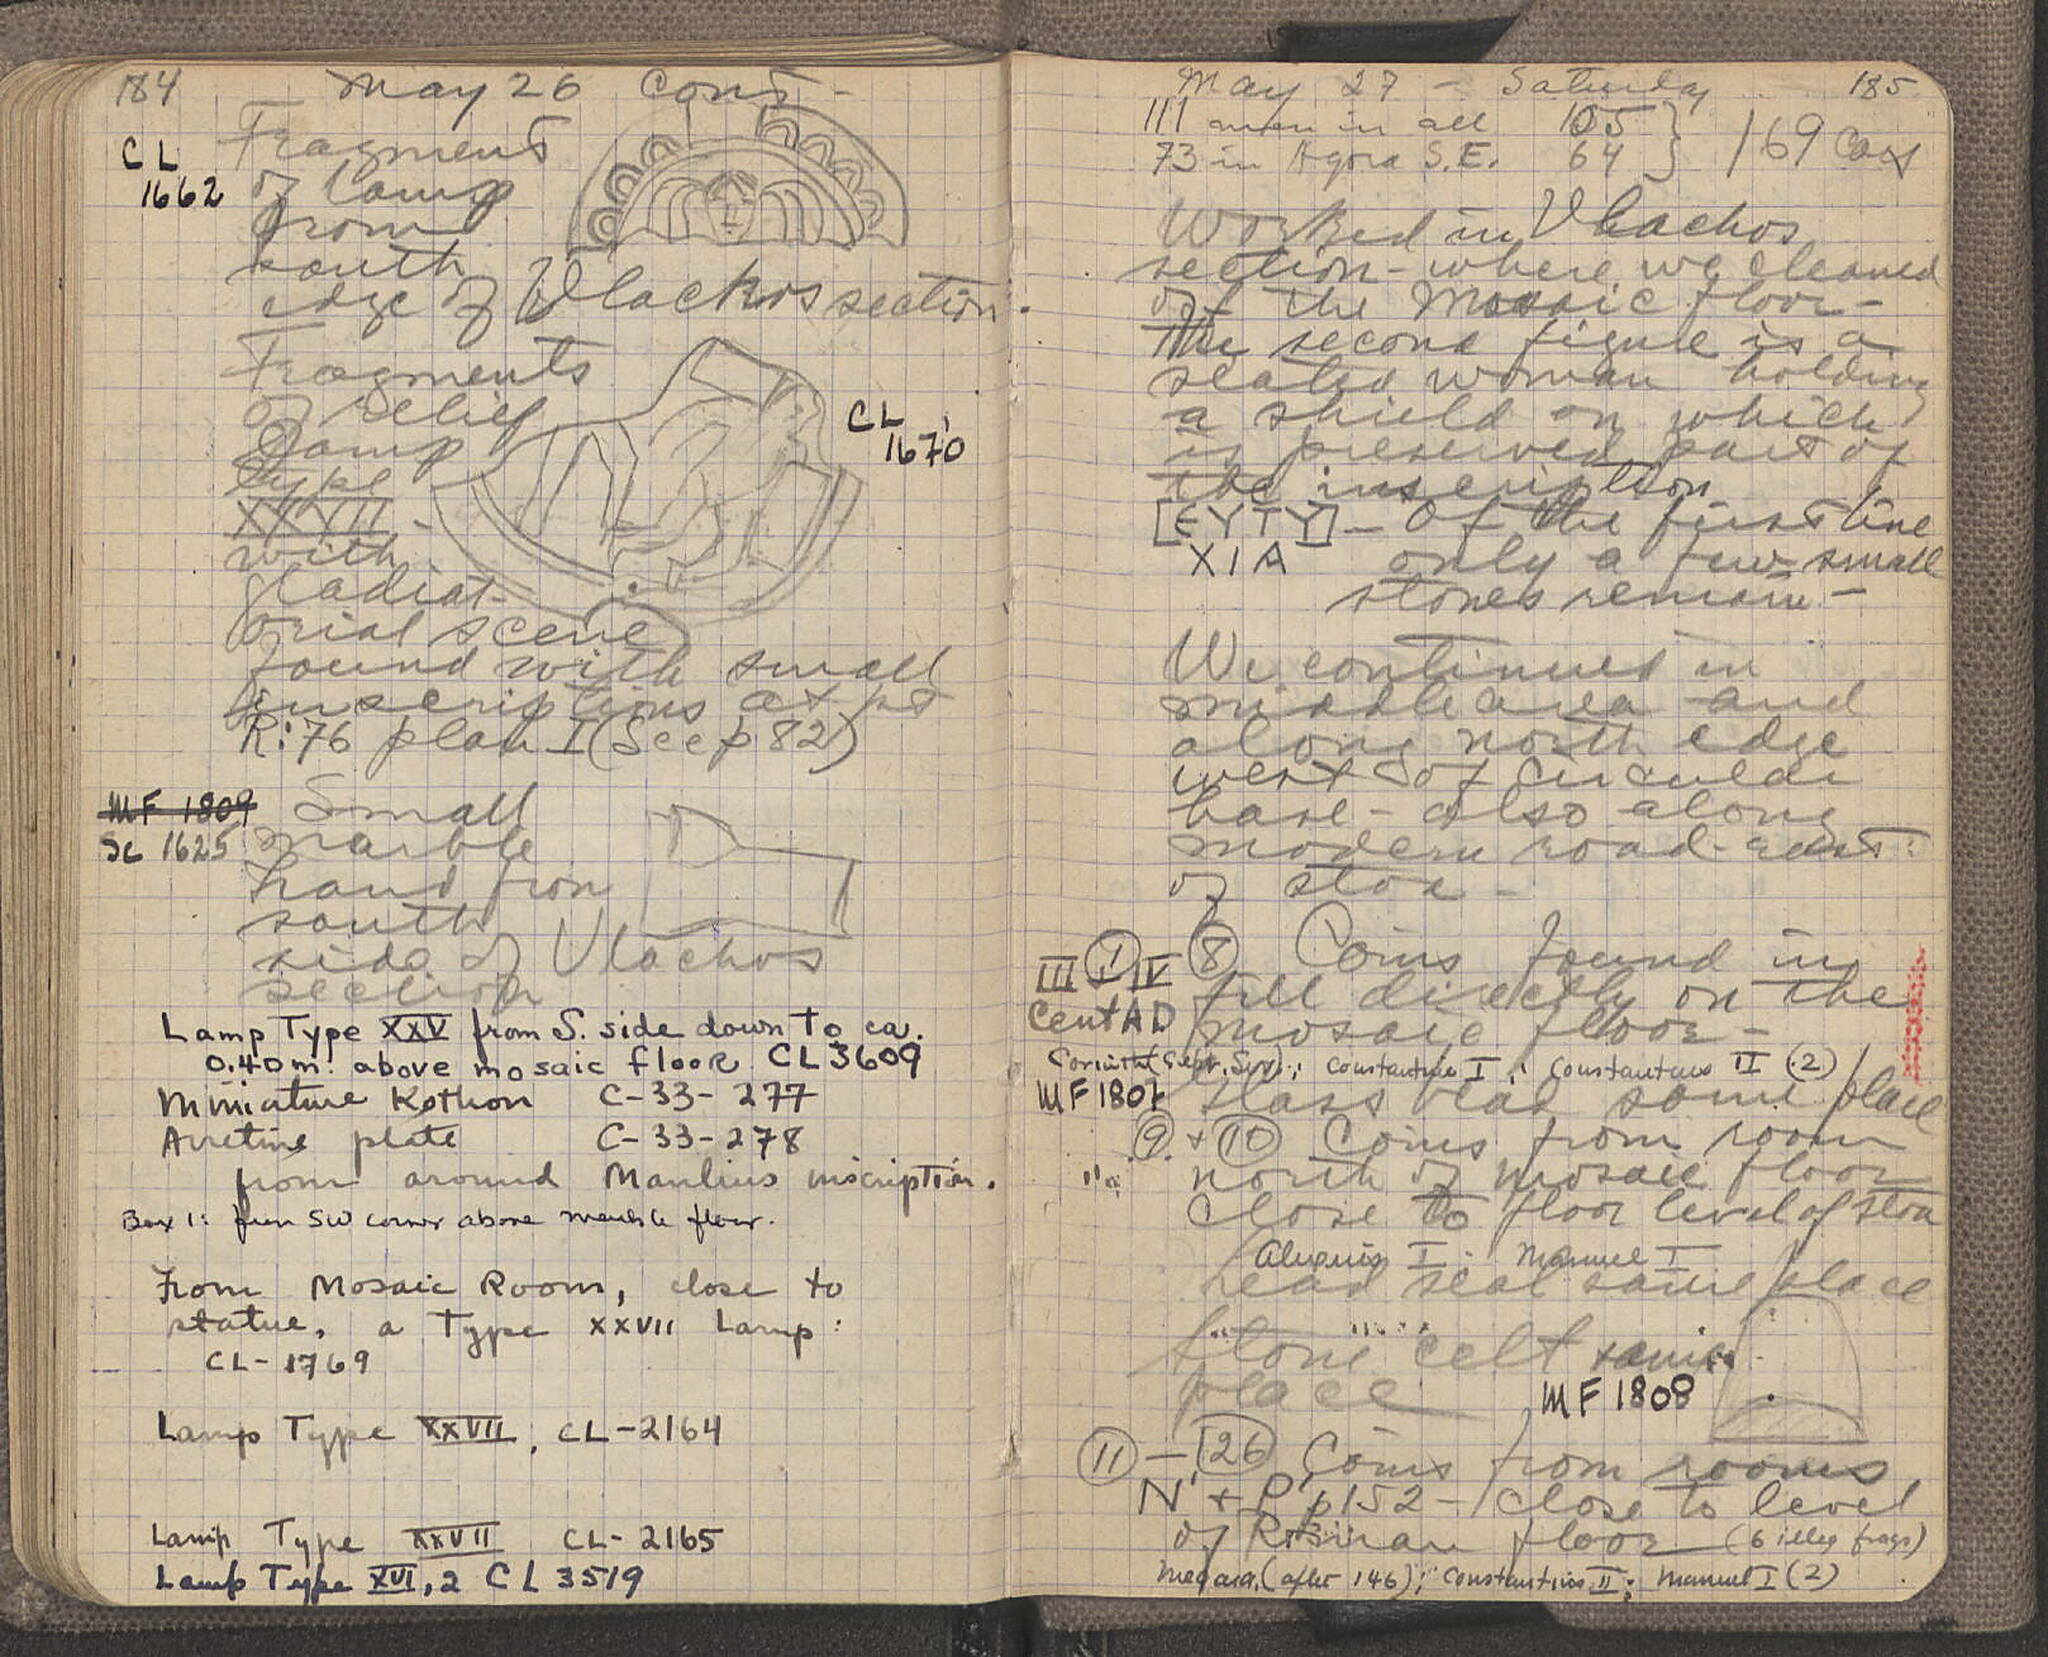 184 May 26 Cont-
CL
1662
Fragment
of lamp
from
south
edge of Vlachos section.
Fragments
of relief
lamp
type
XXVII -
with
gladiat-
orial scene
found with small
inscriptions at pt
R:76 plan I (See p 82)
CL
1670
MF 1809
Sc 1625
Small
marble
hand from
south
side of Vlachos
section
Lamp Type XXV from S. side down to ca.
0.40m. above mosaic floor CL 3609
Miniature Kothon C-33-277
Arretine plate C-33-278
from around Manlius inscription.
Box 1: from SW corner above marble floor.
From Mosaic Room, close to
statue, a Type XXVII Lamp:
CL-1769
Lamp Type XXVII, CL-2164
Lamp Type XXVII CL-2165
Lamp Type XVI, 2 CL 3519
May 27 - Saturday 185
111 men in all 105
73 in Agora S.E. 64
} 169 cars
Worked in Vlachos
section - where we cleaned
off the Mosaic floor -
The second figure is a
seated woman holding
a shield on which
is preserved part of
the inscription
[EYTY] - Of the first line
XIA only a few small
stones remain -
We continued in
middle area and
along north edge
west of circular
base - also along
modern road - east
of stoa -
III IV
Cent AD
8 Coins found in
fill directly on the
mosaic floor -
Corinth (Sept. Sev.); Constantine I; Constantius II (2)
MF 1807 Glass bead same place
9 + 10 Coins from room
north of mosaic floor
close to floor level of stoa
Alexius I; Manuel I
Lead seal same place
Stone celt same
place MF 1808
11 - 26 Coins from rooms
N + P p 152 - close to level
of Roman floor (6 illeg frags)
Megara (after 146); Constantius II; Manuel I (2)